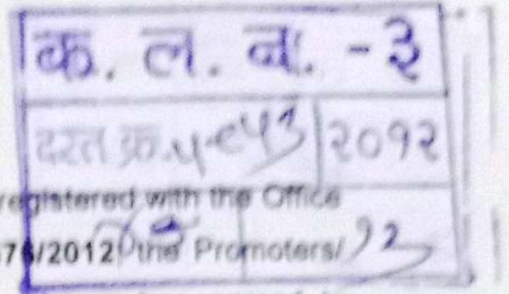 क. ल. न. - ३
दस्त क्र. ५९५३ २०१२
registered with the Office
76/2012 the Promoters/ १२